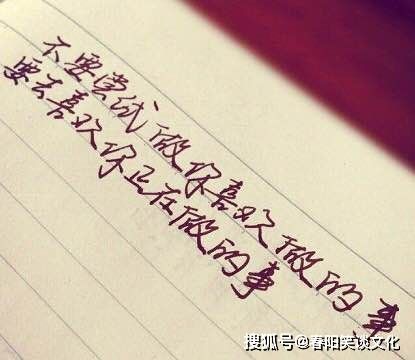 不要尝试做你喜欢做的事
要去喜欢你正在做的事
搜狐号@春阳笑谈文化